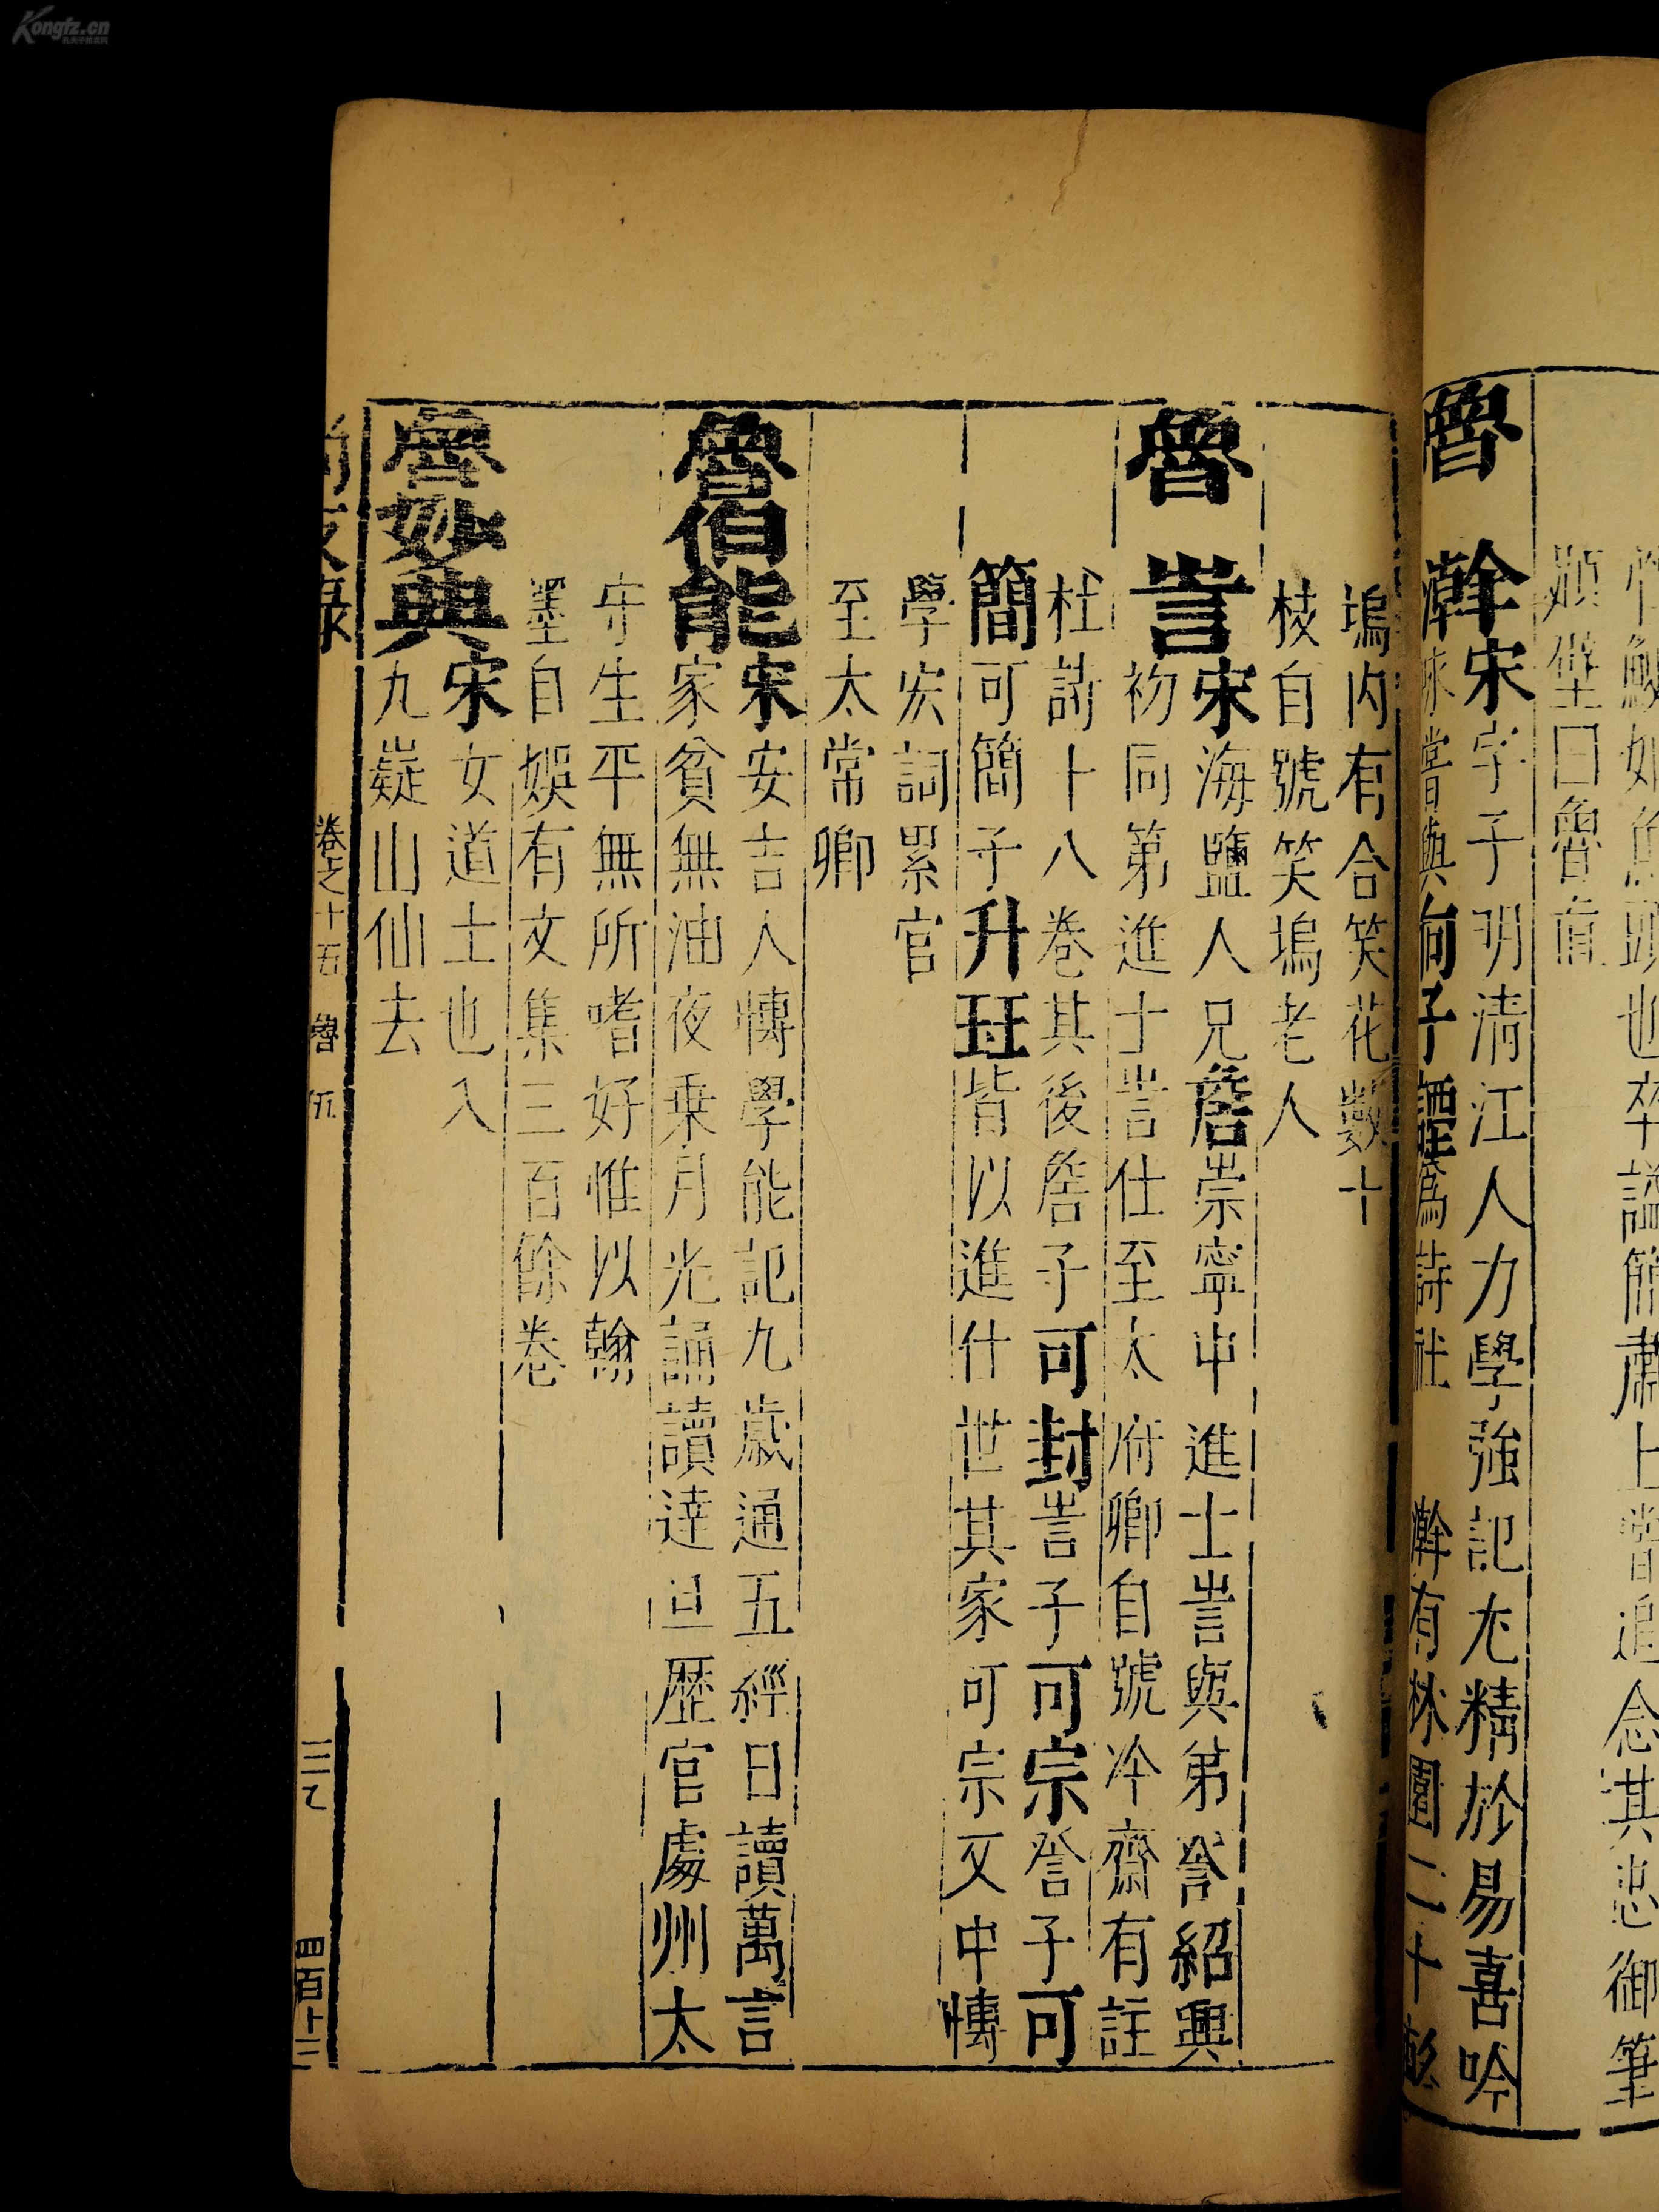 性鯁如魚頭也卒諡簡肅上嘗追念其忠御筆
殿壁曰魯直
魯𣉙宋字子明清江人力學強記尤精於易喜吟
嘗與向子諲為詩社 有林園二十
塢内有含笑花數十
枝自號笑塢老人
魯訔宋海鹽人兄詹崇寧中進士訔與弟訔紹興
初同第進士訔仕至太府卿自號冷齋有註
杜詩十八卷其後詹子可封訔子可宗訔子可
簡可簡子升玨皆以進仕世其家可宗又中博
學宏詞累官
至太常卿
魯伯能宋安吉人博學能記九歲通五經日讀萬言
家貧無油夜乘月光誦讀達旦歷官處州太
守生平無所嗜好惟以翰
墨自娛有文集三百餘卷
魯妙典宋女道士也入
九嶷山仙去
卷之十五 魯 伍
四百十三
Kongfz.cn